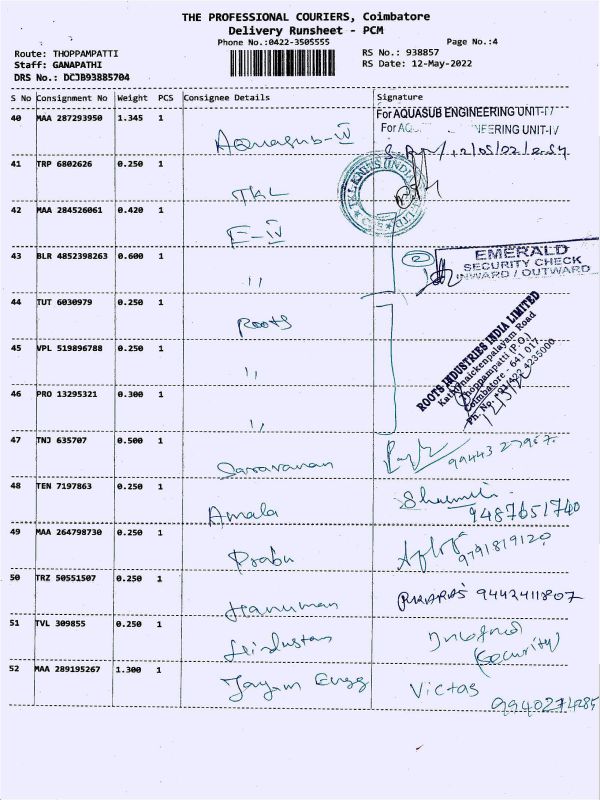 THE PROFESSIONAL COURIERS, Coimbatore
Delivery Runsheet - PCM
Phone No.:0422-3505555 Page No.:4
Route: THOPPAMPATTI RS No.: 938857
Staff: GANAPATHI RS Date: 12-May-2022
DRS No.: DCJB93885704
S No Consignment No Weight PCS Consignee Details Signature
40 MAA 287293950 1.345 1 Aquasub-IV
For AQUASUB ENGINEERING UNIT-IV
For AQ NEERING UNIT-IV
41 TRP 6802626 0.250 1 TKL
42 MAA 284526061 0.420 1 E-IV
43 BLR 4852398263 0.600 1 ,,
2
EMERALD
SECURITY CHECK
INWARD / OUTWARD
44 TUT 6030979 0.250 1 Roots
45 VPL 519896788 0.250 1 ,,
46 PRO 13295321 0.300 1 ,,
ROOTS INDUSTRIES INDIA LIMITED
Kathirnaickenpalayam Road
Thoppampatti (P.O.)
Coimbatore - 641 017
Ph. No. +91 422 4235000
47 TNJ 635707 0.500 1 Saravanan
48 TEN 7197863 0.250 1 Amala 9487651740
49 MAA 264798730 0.250 1 Prabu 9791819120
50 TRZ 50551507 0.250 1 Hanuman 9442411807
51 TVL 309855 0.250 1 Hindustan
(Security)
52 MAA 289195267 1.300 1 Jayam Engg Victas
9940274285